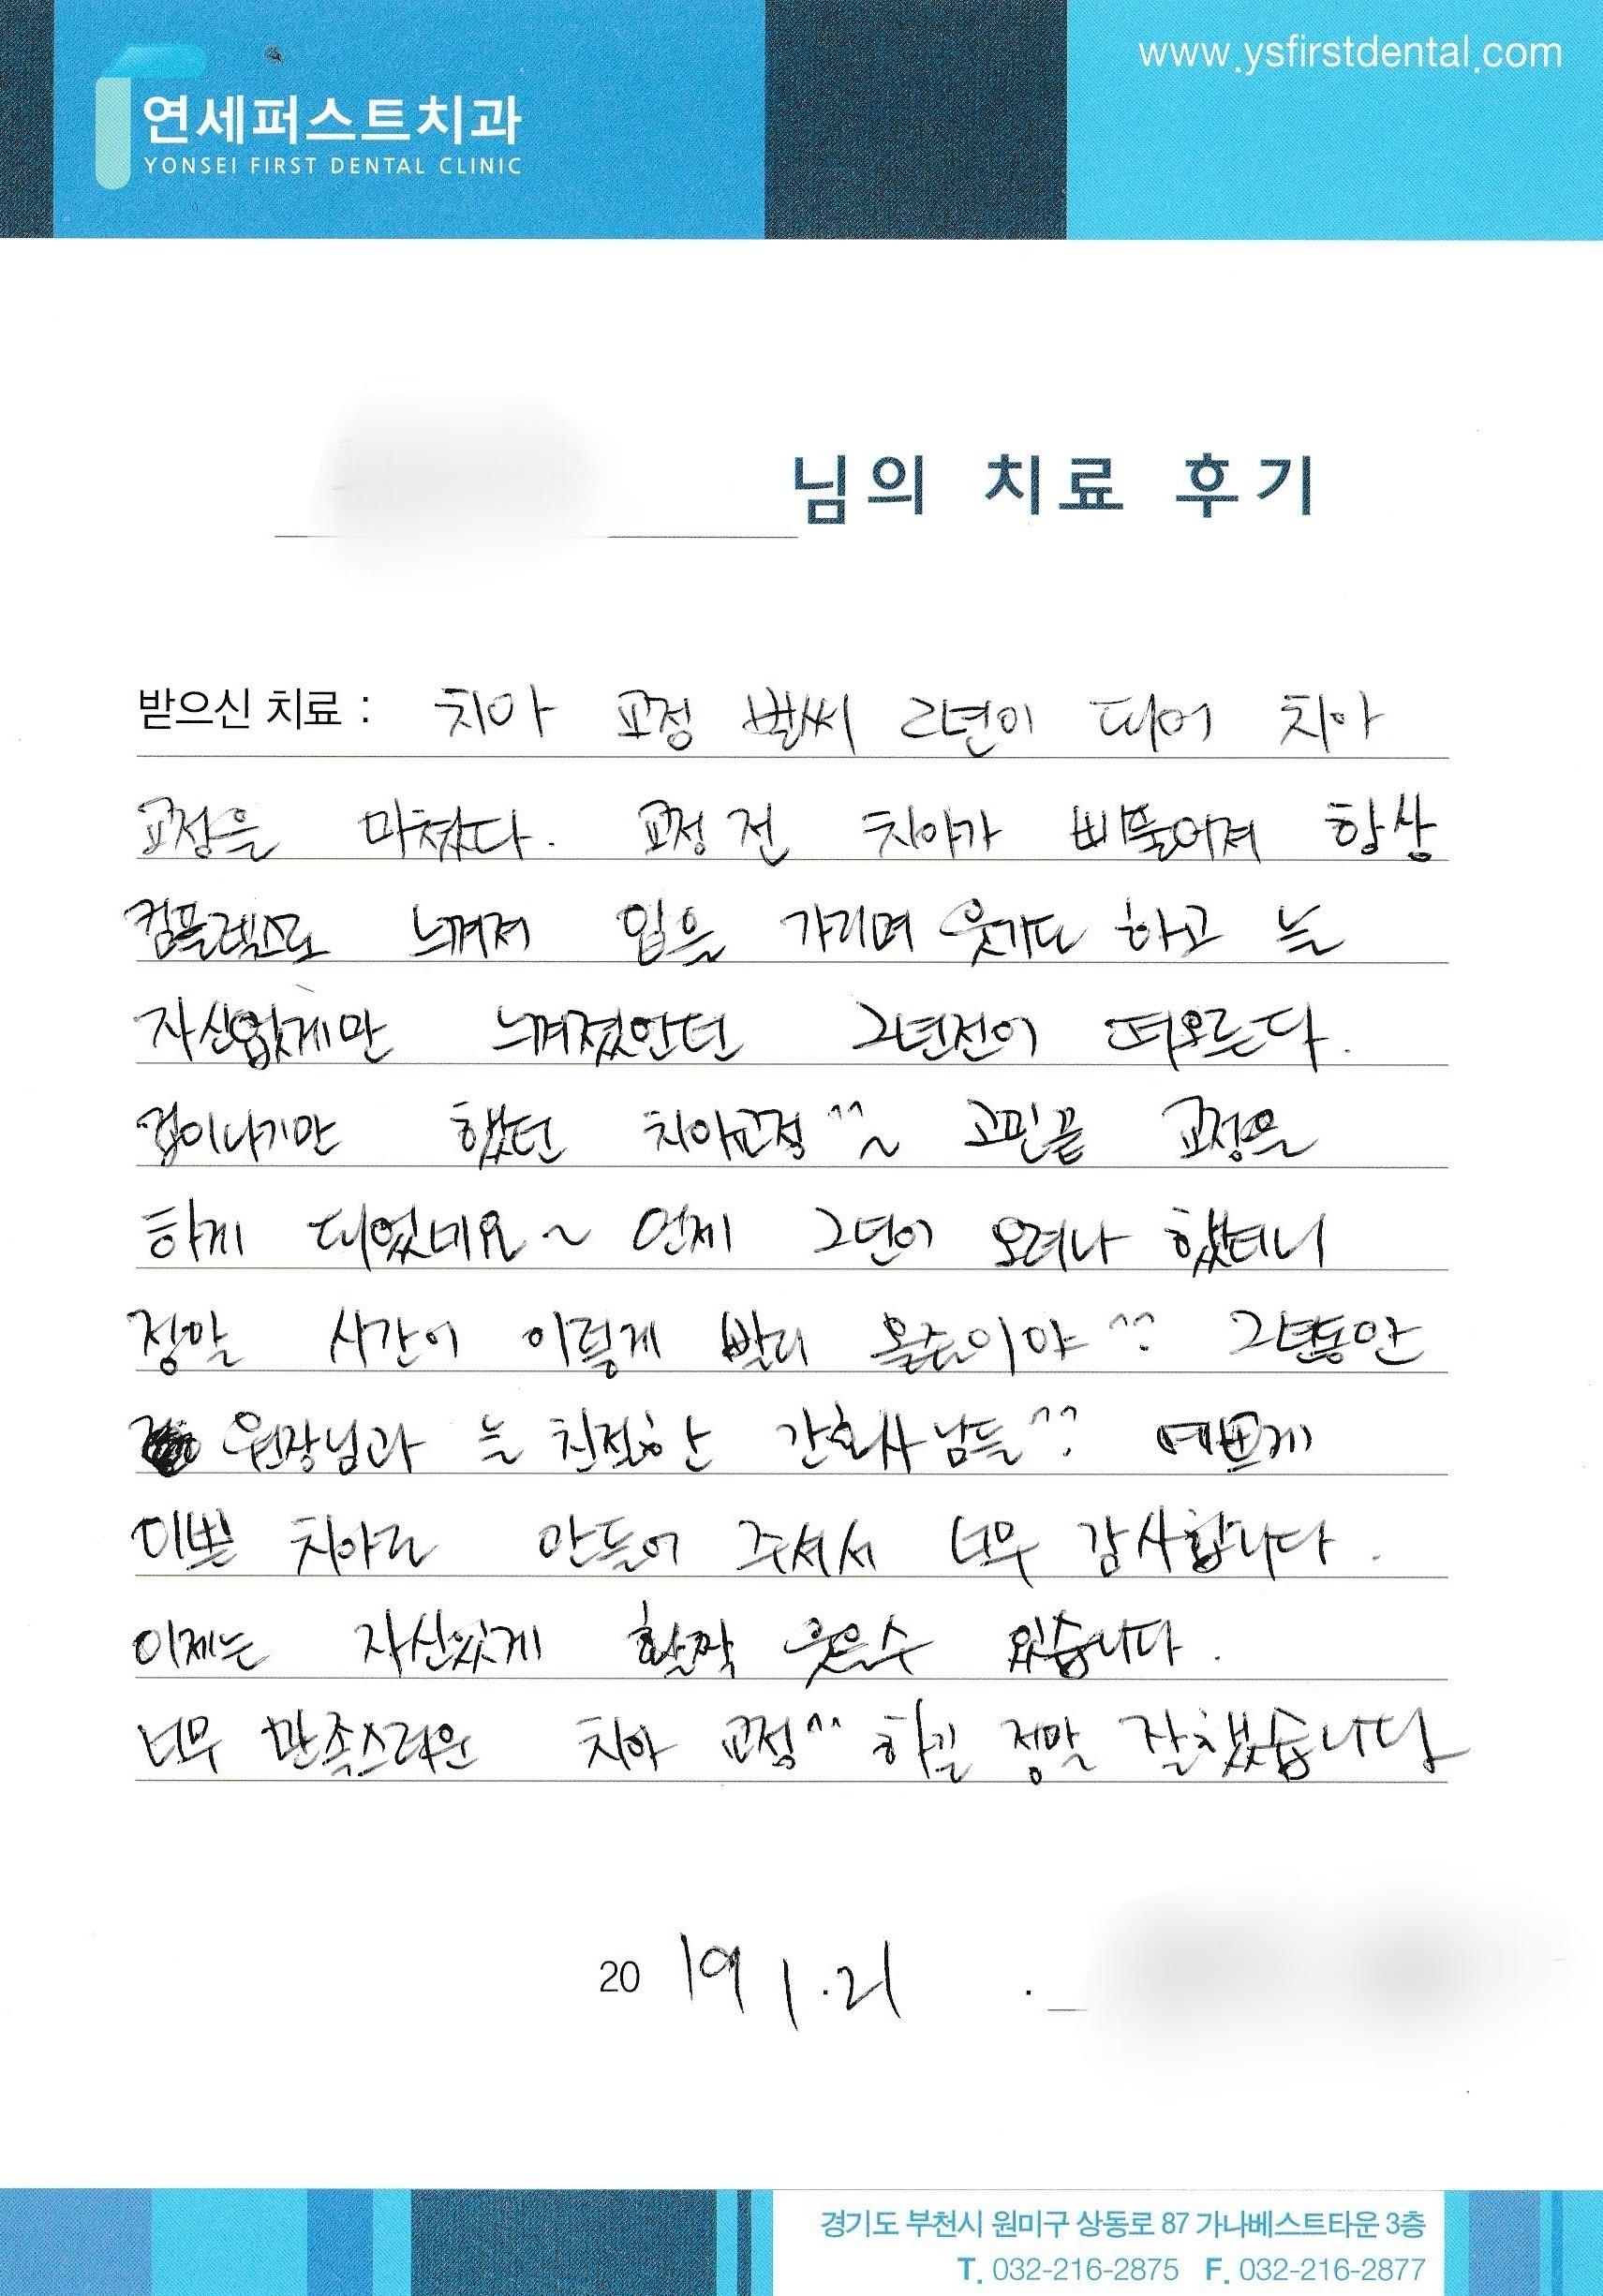 www.ysfirstdental.com
연세퍼스트치과
YONSEI FIRST DENTAL CLINIC
님의 치료 후기
받으신 치료 : 치아 교정 벌써 2년이 되어 치아
교정을 마쳤다. 교정 전 치아가 삐뚤어져 항상
컴플렉스로 느껴져 입을 가리며 웃기도 하고 늘
자신없게만 느껴졌안던 2년전이 떠오른다.
겁이나기만 했던 치아교정^^~ 고민끝 교정을
하게 되었네요~ 언제 2년이 오려나 했더니
정말 시간이 이렇게 빨리 올줄이야^^ 2년동안
원장님과 늘 친절한 간호사님들^^ 예쁘게
이쁜 치아로 만들어 주셔서 너무 감사합니다.
이제는 자신있게 활짝 웃을수 있습니다.
너무 만족스러운 치아 교정^^ 하길 정말 잘했습니다
2019 1.21 .
경기도 부천시 원미구 상동로 87 가나베스트타운 3층
T. 032-216-2875 F. 032-216-2877